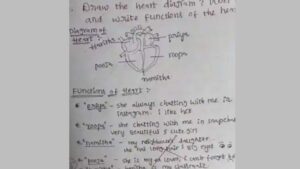 Draw the heart diagram? 
and write functions of the hea
Diagram of
Heart :-
Haritha
priya
pooja
roopa
namitha
Functions of Heart :-
"priya" - she always chatting with me in
instagram. I like her
"roopa" - she chatting with me in snapchat
very beautiful & cute girl
"namitha" - my neighbour's daughter
she has long hair & big eyes
"pooja" - she is my ex lover, I can't forget
"Haritha" is my classmate